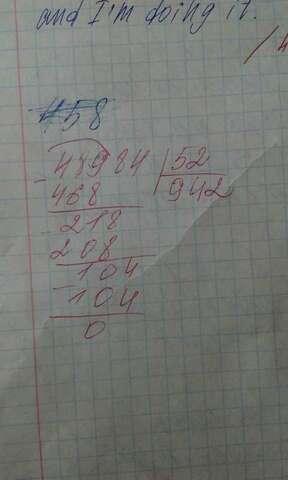 and I'm doing it.
458
48984 52
468 942
218
208
104
104
0